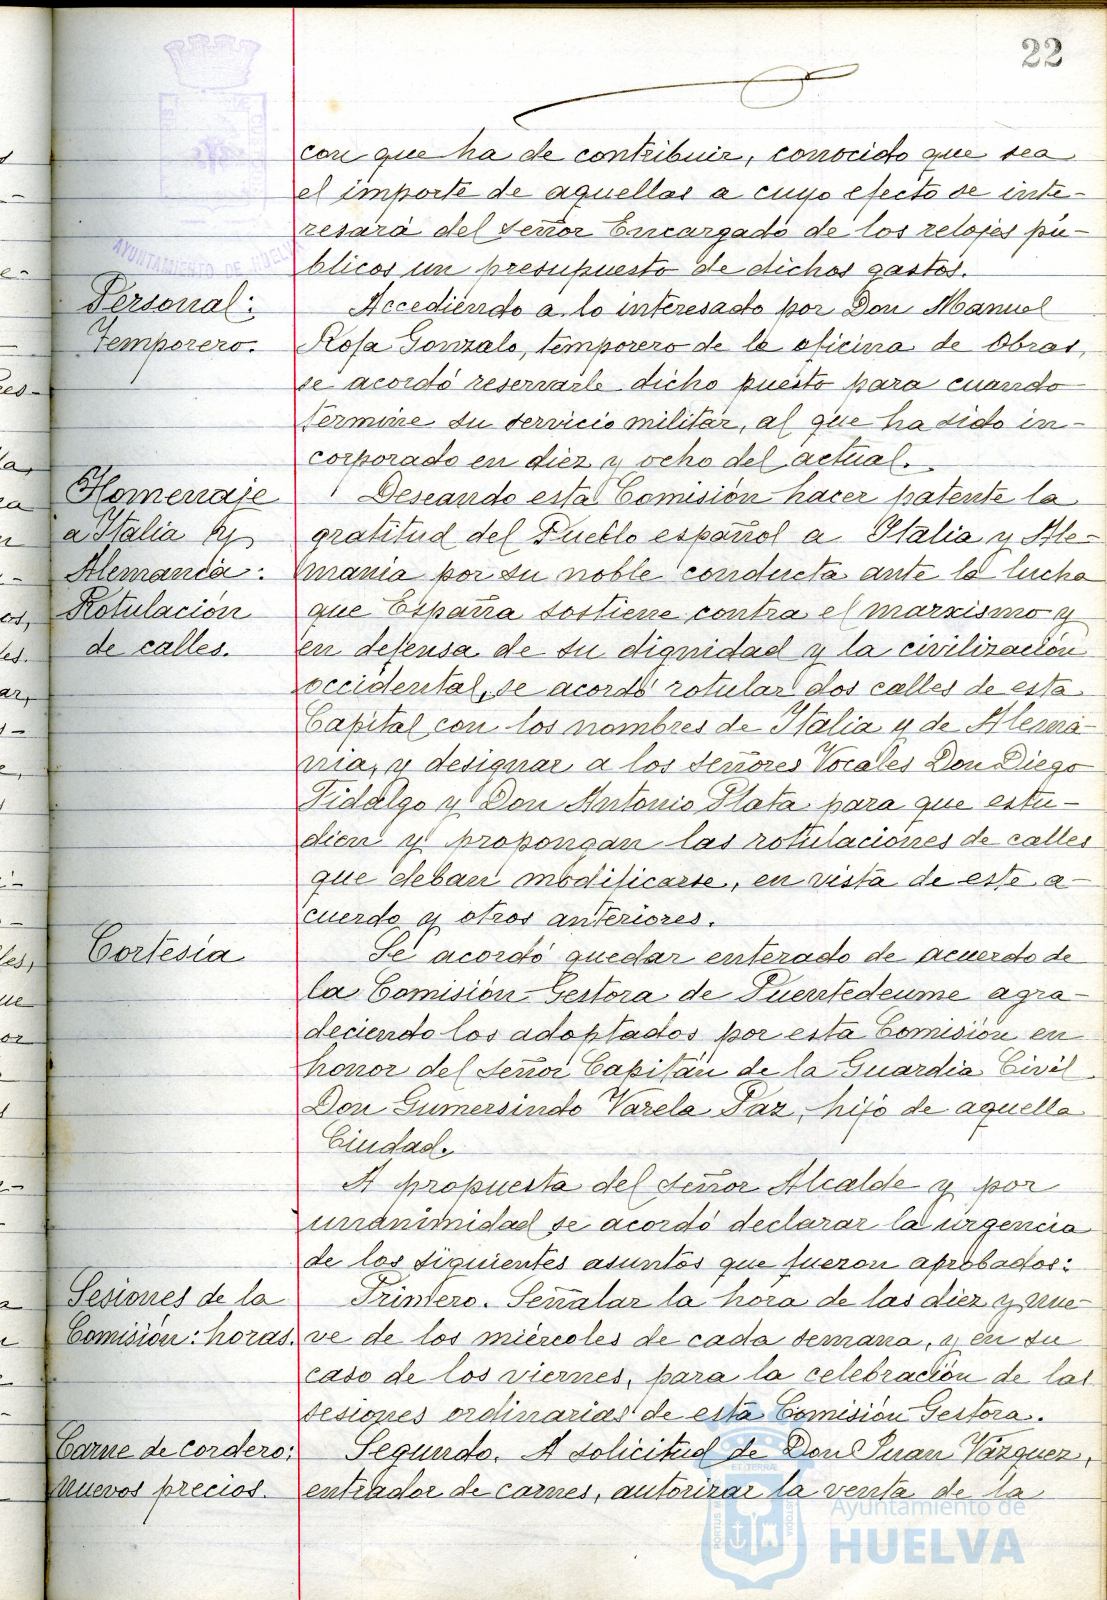 22
con que ha de contribuir, conocido que sea
el importe de aquellas a cuyo efecto se inte-
resará del señor Encargado de los relojes pú-
blicos un presupuesto de dichos gastos.
AYUNTAMIENTO DE HUELVA
Personal:
Temporero.
Accediendo a lo interesado por Don Manuel
Rofa Gonzalo, temporero de la oficina de Obras,
se acordó reservarle dicho puesto para cuando
termine su servicio militar, al que ha sido in-
corporado en diez y ocho del actual.
Homenaje
a Italia y
Alemania:
Rotulación
de calles.
Deseando esta Comisión hacer patente la
gratitud del Pueblo español a Italia y Ale-
mania por su noble conducta ante la lucha
que España sostiene contra el marxismo y
en defensa de su dignidad y la civilización
occidental, se acordó rotular dos calles de esta
Capital con los nombres de Italia y de Alema-
nia, y designar a los señores Vocales Don Diego
Fidalgo y Don Antonio Plata para que estu-
dien y propongan las rotulaciones de calles
que deban modificarse, en vista de este a-
cuerdo y otros anteriores.
Cortesía
Se acordó quedar enterado de acuerdo de
la Comisión Gestora de Puentedeume agra-
deciendo los adoptados por esta Comisión en
honor del señor Capitán de la Guardia Civil
Don Gumersindo Varela Paz, hijo de aquella
Ciudad.
A propuesta del señor Alcalde y por
unanimidad se acordó declarar la urgencia
de los siguientes asuntos que fueron aprobados:
Sesiones de la
Comisión: horas.
Primero. Señalar la hora de las diez y nue-
ve de los miércoles de cada semana, y en su
caso de los viernes, para la celebración de las
sesiones ordinarias de esta Comisión Gestora.
Carne de cordero:
nuevos precios.
Segundo. A solicitud de Don Juan Vázquez,
entrador de carnes, autorizar la venta de la
Ayuntamiento de
HUELVA